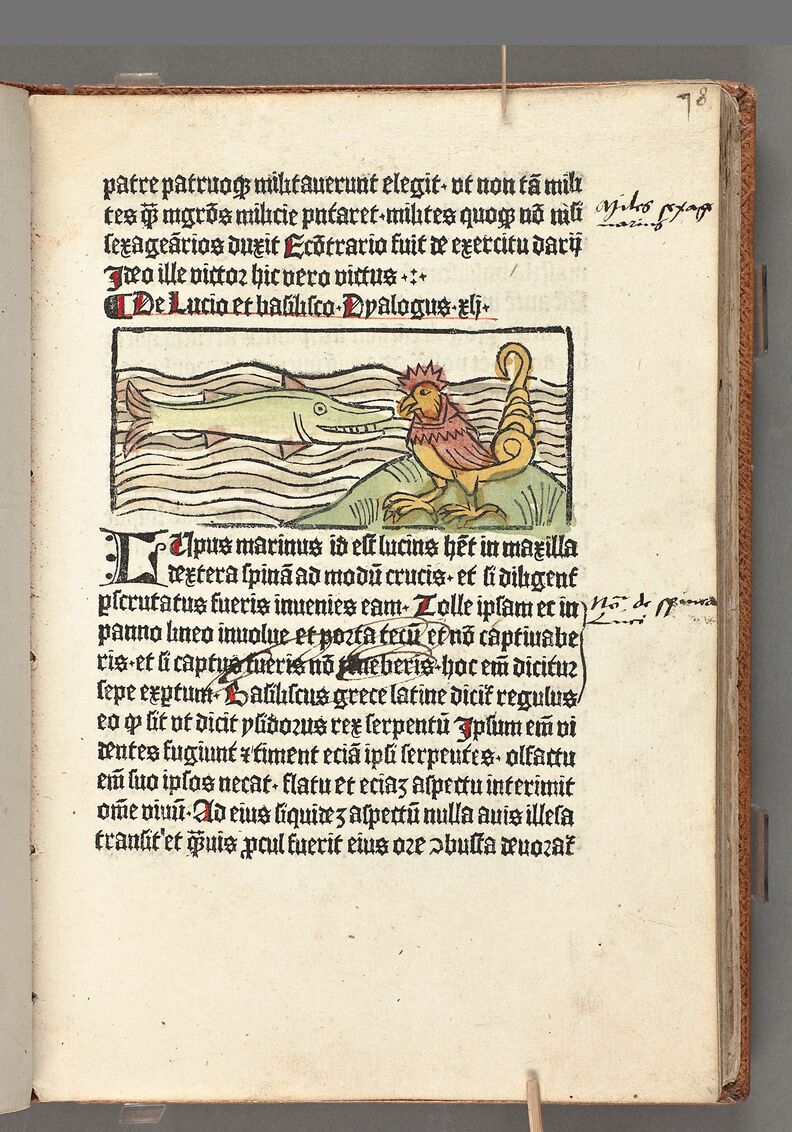 78
patre patruoqꝫ militauerunt elegit· vt non tā mili
tes qͣ̄ mgr̄os milicie putaret· milites quoqꝫ nō nisi
Miles sexage
narius
sexageāarios duxit Ecōtrario fuit de exercitu darij
Ideo ille victor hic vero victus ·:·
De Lucio et basilisco· Dyalogus· xlj·
LUpus marinus id est lucius hēt in maxilla
dextera spinā ad modū crucis· et si diligent̄
ꝑscrutatus fueris inuenies eam· Tolle ipsam et in
No᷃ de spina
Luci
panno lineo inuolue et porta tecū et nō captiuabe
ris· et si captus fueris nō teneberis· hoc em̄ dicitur
sepe exꝑtum· Basiliscus grece latine dicit᷑ regulus
eo ꝙ sit vt dicit ysidorus rex serpentū Ipsum em̄ vi
dentes fugiunt ⁊ timent eciā ipsi serpentes· olfactu
em̄ suo ipsos necat· flatu et eciaꝫ aspectu interimit
om̄e viuū· Ad eius siquideꝫ aspectū nulla auis illesa
transit et qͣ̄uis ꝓcul fuerit eius ore ↄbusta deuorat᷑